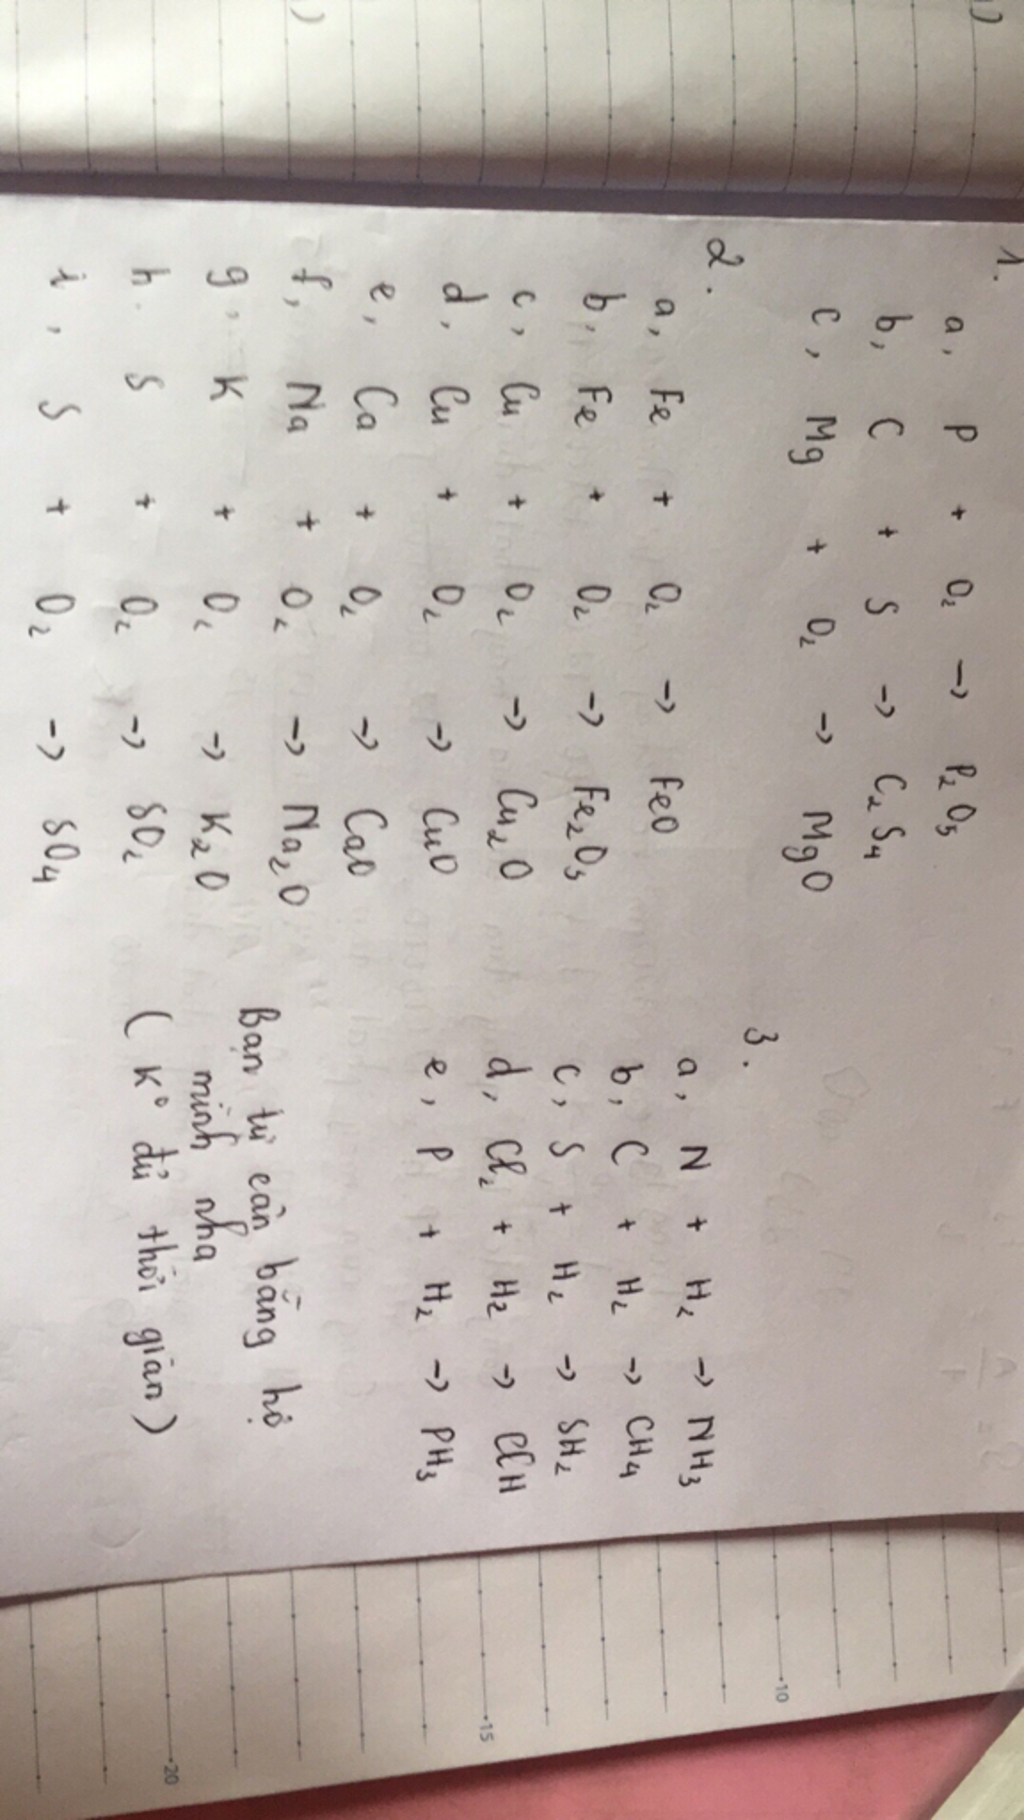 1.
a, P + O2 → P2O5
b, C + S → C2S4
c, Mg + O2 → MgO
2.
a, Fe + O2 → FeO
b, Fe + O2 → Fe2O3
c, Cu + O2 → Cu2O
d, Cu + O2 → CuO
e, Ca + O2 → CaO
f, Na + O2 → Na2O
g, K + O2 → K2O
h. S + O2 → SO2
i, S + O2 → SO4
3.
a, N + H2 → NH3
b, C + H2 → CH4
c, S + H2 → SH2
d, Cl2 + H2 → ClH
e, P + H2 → PH3
Bạn tự cân bằng hộ
mình nha
(K° đủ thời gian)
10
15
20